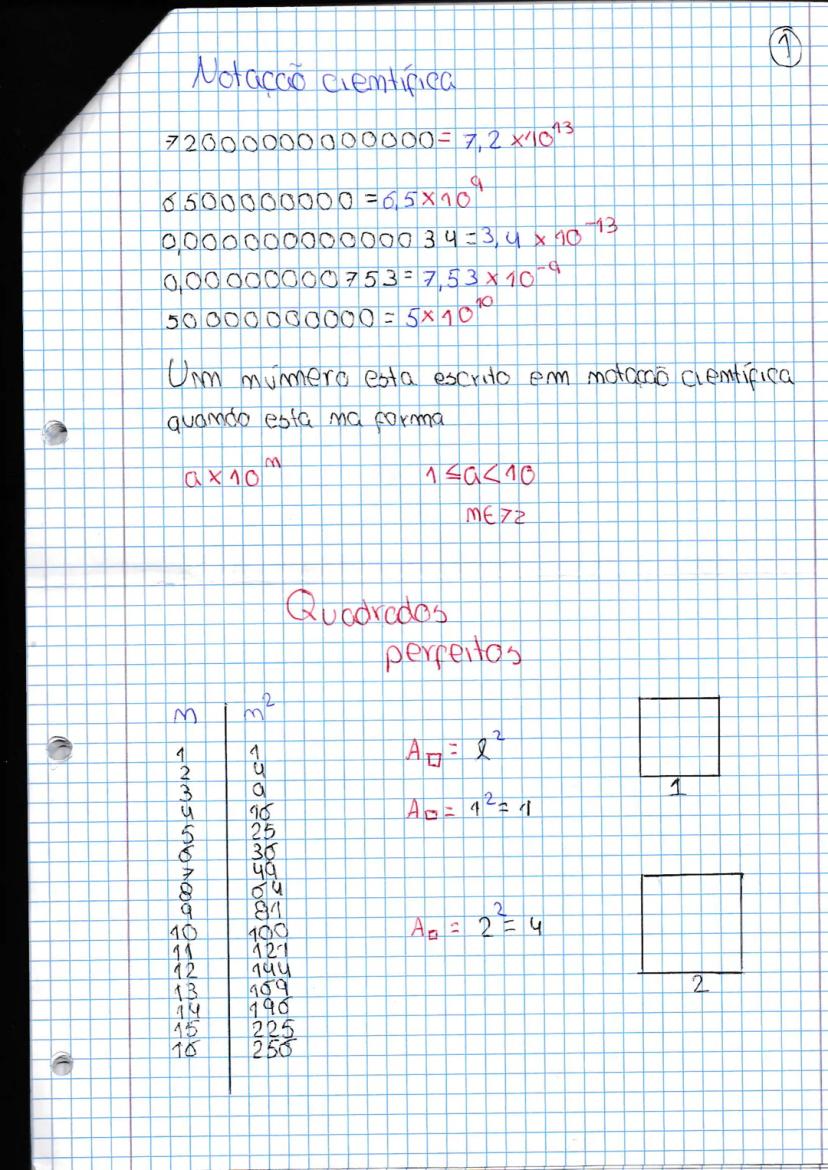 1
Notação científica
72000000000000 = 7,2 × 10¹³
6500000000 = 6,5 × 10⁹
0,00000000000034 = 3,4 × 10⁻¹³
0,00000000753 = 7,53 × 10⁻⁹
50000000000 = 5 × 10¹⁰
Um número esta escrito em notação científica
quando esta na forma
a × 10ⁿ 1 ≤ a < 10
n ∈ ℤ
Quadrados
perfeitos
n n²
1 1
2 4
3 9
4 16
5 25
6 36
7 49
8 64
9 81
10 100
11 121
12 144
13 169
14 196
15 225
16 256
A□ = l²
1
A□ = 1² = 1
A□ = 2² = 4
2